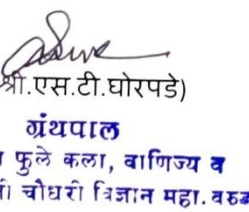 श्री.एस.टी.घोरपडे)
ग्रंथपाल
फुले कला, वाणिज्य व
चौधरी विज्ञान महा. वरुड